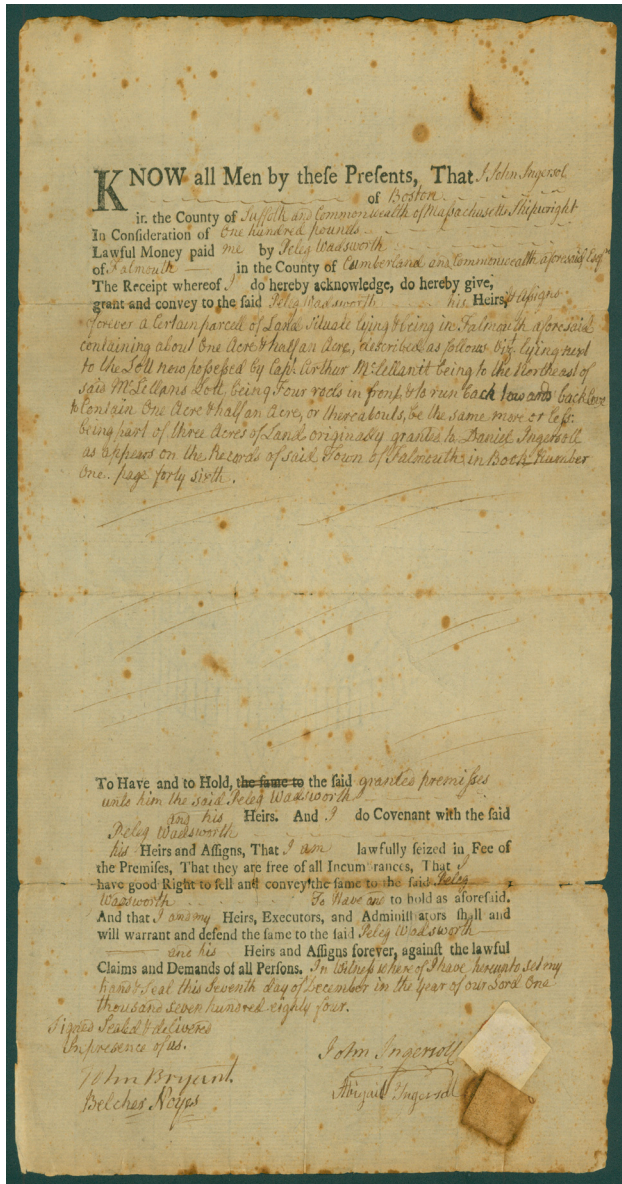 KNOW all Men by theſe Preſents, That I John Ingersol,
of Boston
in the County of Suffolk and Commonwealth of Massachusetts Shipwright
In Conſideration of One hundred pounds
Lawful Money paid me by Peleg Wadsworth
of Falmouth in the County of Cumberland and Commonwealth aforesaid Esqr
The Receipt whereof I do hereby acknowledge, do hereby give,
grant and convey to the ſaid Peleg Wadsworth his Heirs, & Assigns
forever a Certain parcell of Land Situate lying & being in Falmouth aforesaid
containing about One Acre & half an Acre, described as follows viz. lying next
to the Lott now possessed by Capt. Arthur McLellan it being to the Northeast of
said McLellans Lott, being Four rods in front, & to run back towards back Cove
to Contain One Acre & half an Acre, or thereabouts, be the same more or less.
being part of three Acres of Land originally granted to Daniel Ingersoll
as appears on the Records of said Town of Falmouth in Book Number
One. page forty sixth.
To Have and to Hold, the ſame to the ſaid granted premisses
unto him the said Peleg Wadsworth
and his Heirs. And I do Covenant with the ſaid
Peleg Wadsworth
his Heirs and Aſſigns, That I am lawfully ſeized in Fee of
the Premiſes, That they are free of all Incum rances, That I
have good Right to ſell and convey the ſame to the ſaid Peleg
Wadsworth To Have and to hold as aforeſaid.
And that I and my Heirs, Executors, and Adminiſtrators ſhall and
will warrant and defend the ſame to the ſaid Peleg Wadsworth
and his Heirs and Aſſigns forever, againſt the lawful
Claims and Demands of all Perſons. In Witness where of I have hereunto set my
hand & Seal this Seventh day of December in the year of our Lord One
thousand seven hundred eighty four.
Signed Sealed & delivered
In presence of us.
John Ingersoll
John Bryant
Abigail Ingersoll
Belcher Noyes